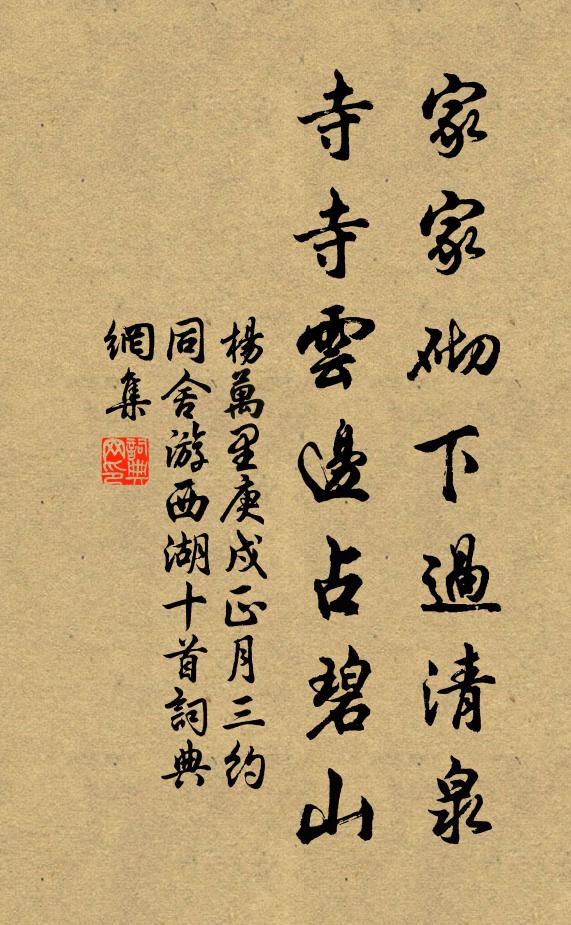 家家砌下過清泉
寺寺雲邊占碧山
楊萬里庚戌正月三約
同舍游西湖十首詞典
網集
詞典
网印